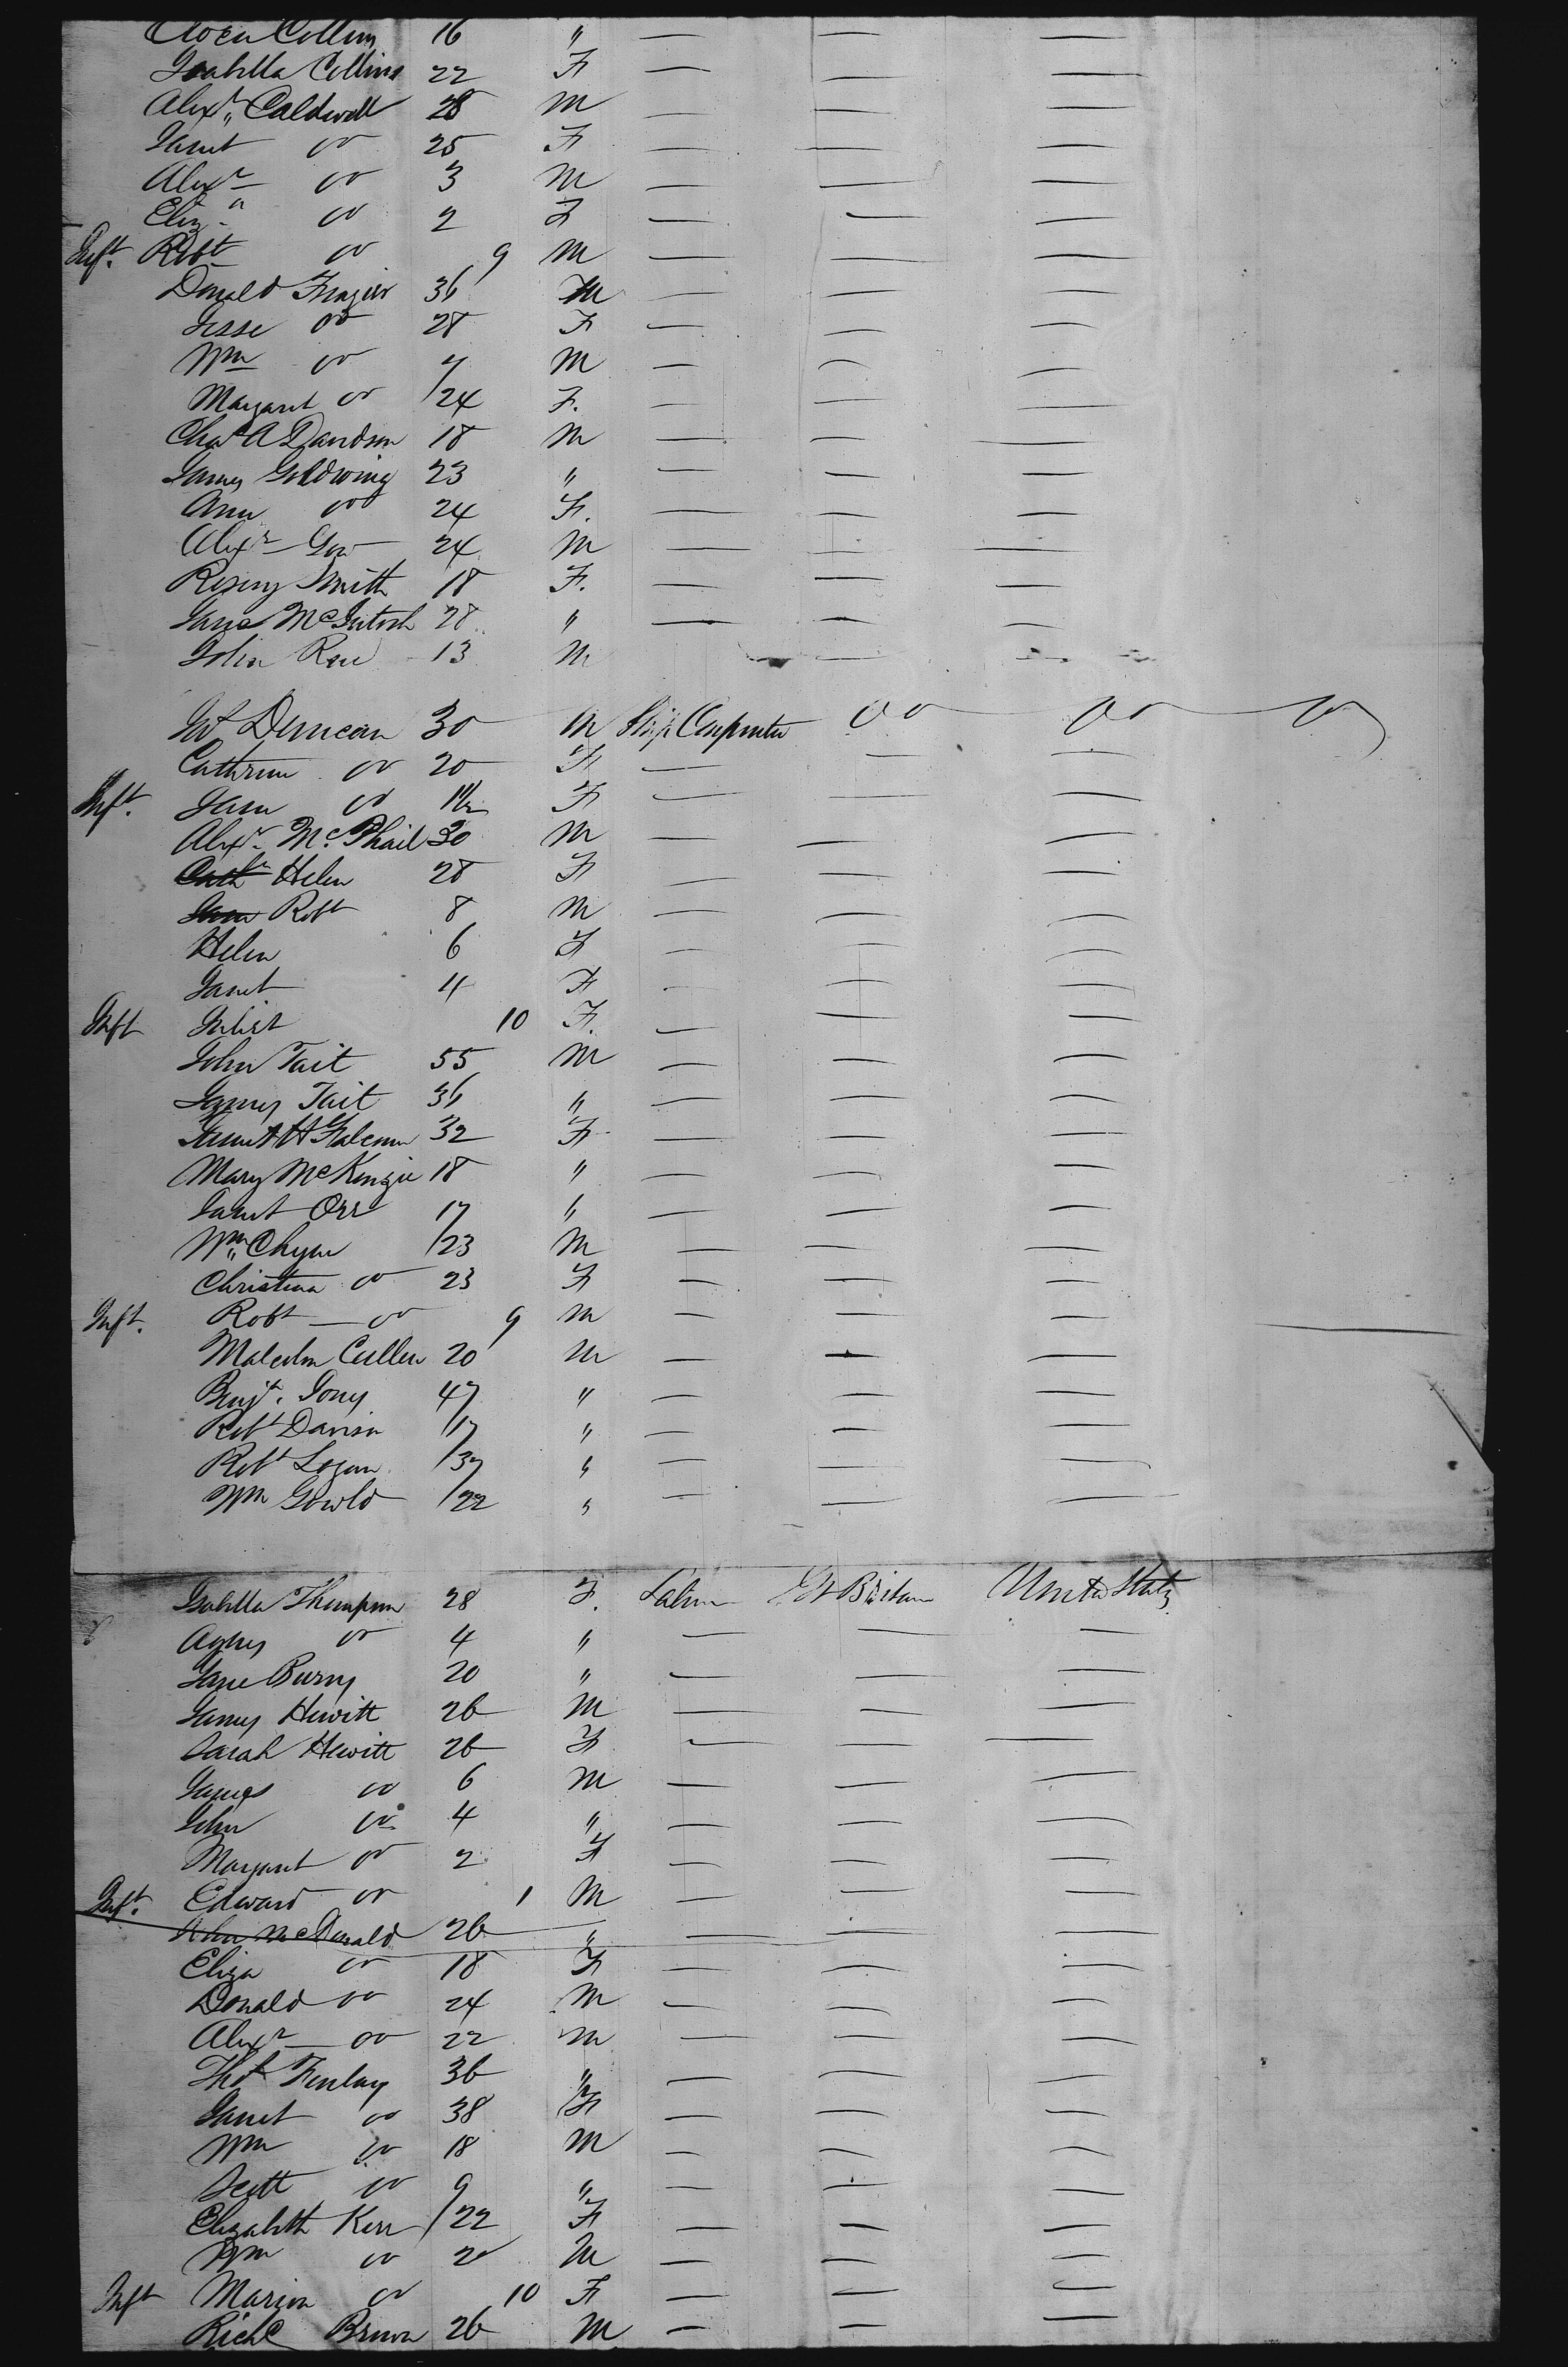 Collins 16 "
Isabella Collins 22 F — — —
Alexr Caldwell 28 M — — —
Janet do 25 F — — —
Alexr do 3 M — — —
Eliza do 2 F — — —
Inft. Robt do 9 M — — —
Donald Frazier 36 M — — —
Jesse do 28 F — — —
Wm do 7 M — — —
Margaret do 24 F. — — —
Chas A Davidson 18 M — — —
James Goldwing 23 " — — —
Ann do 24 F. — — —
Alexr Gow 24 M — — —
Rosey Smith 18 F. — — —
Jane McIntosh 28 " — — —
John Rose 13 M — —
Duncan 30 M Ship Carpenter do do do
Cathrine do 20 F — — —
Inft. Jane do F — — —
Alexr McPhail 30 M — — —
Helen 28 F — — —
Robt 8 M — — —
Helen 6 F — — —
Janet 4 F — — —
Inft 10 F. — — —
John Tait 55 M — — —
James Tait 36 " — — —
Janet 32 F — — —
Mary McKenzie 18 " — — —
Janet Orr 17 " — — —
Wm Chyne 23 M — — —
Christina do 23 F — — —
Inft. Robt do 9 M — — —
Malcolm Cullen 20 M — — —
Benjn. Jones 47 " — — —
Robt Davison 17 " — — —
Robt Logan 37 " — — —
Wm Gowld 22 " — — —
Isabella Thompson 28 F. Gt Britain United States
Agnes do 4 " — — —
Jane Burns 20 " — — —
James Hewitt 26 M — — —
Sarah Hewitt 26 F — — —
James do 6 M — — —
John do 4 " — — —
Margaret do 2 F — — —
Inft. Edward do 1 M — — —
John McDonald 26 " — — —
Eliza do 18 F — — —
Donald do 24 M — — —
Alexr do 22 M — — —
Thos Finlay 36 " — — —
Janet do 38 F — — —
Wm do 18 M — — —
Scott do 9 " — — —
Elizabeth Kerr 22 F — — —
Wm do 2 M — — —
Inft Marion do 10 F — — —
Richd Brown 26 M — — —